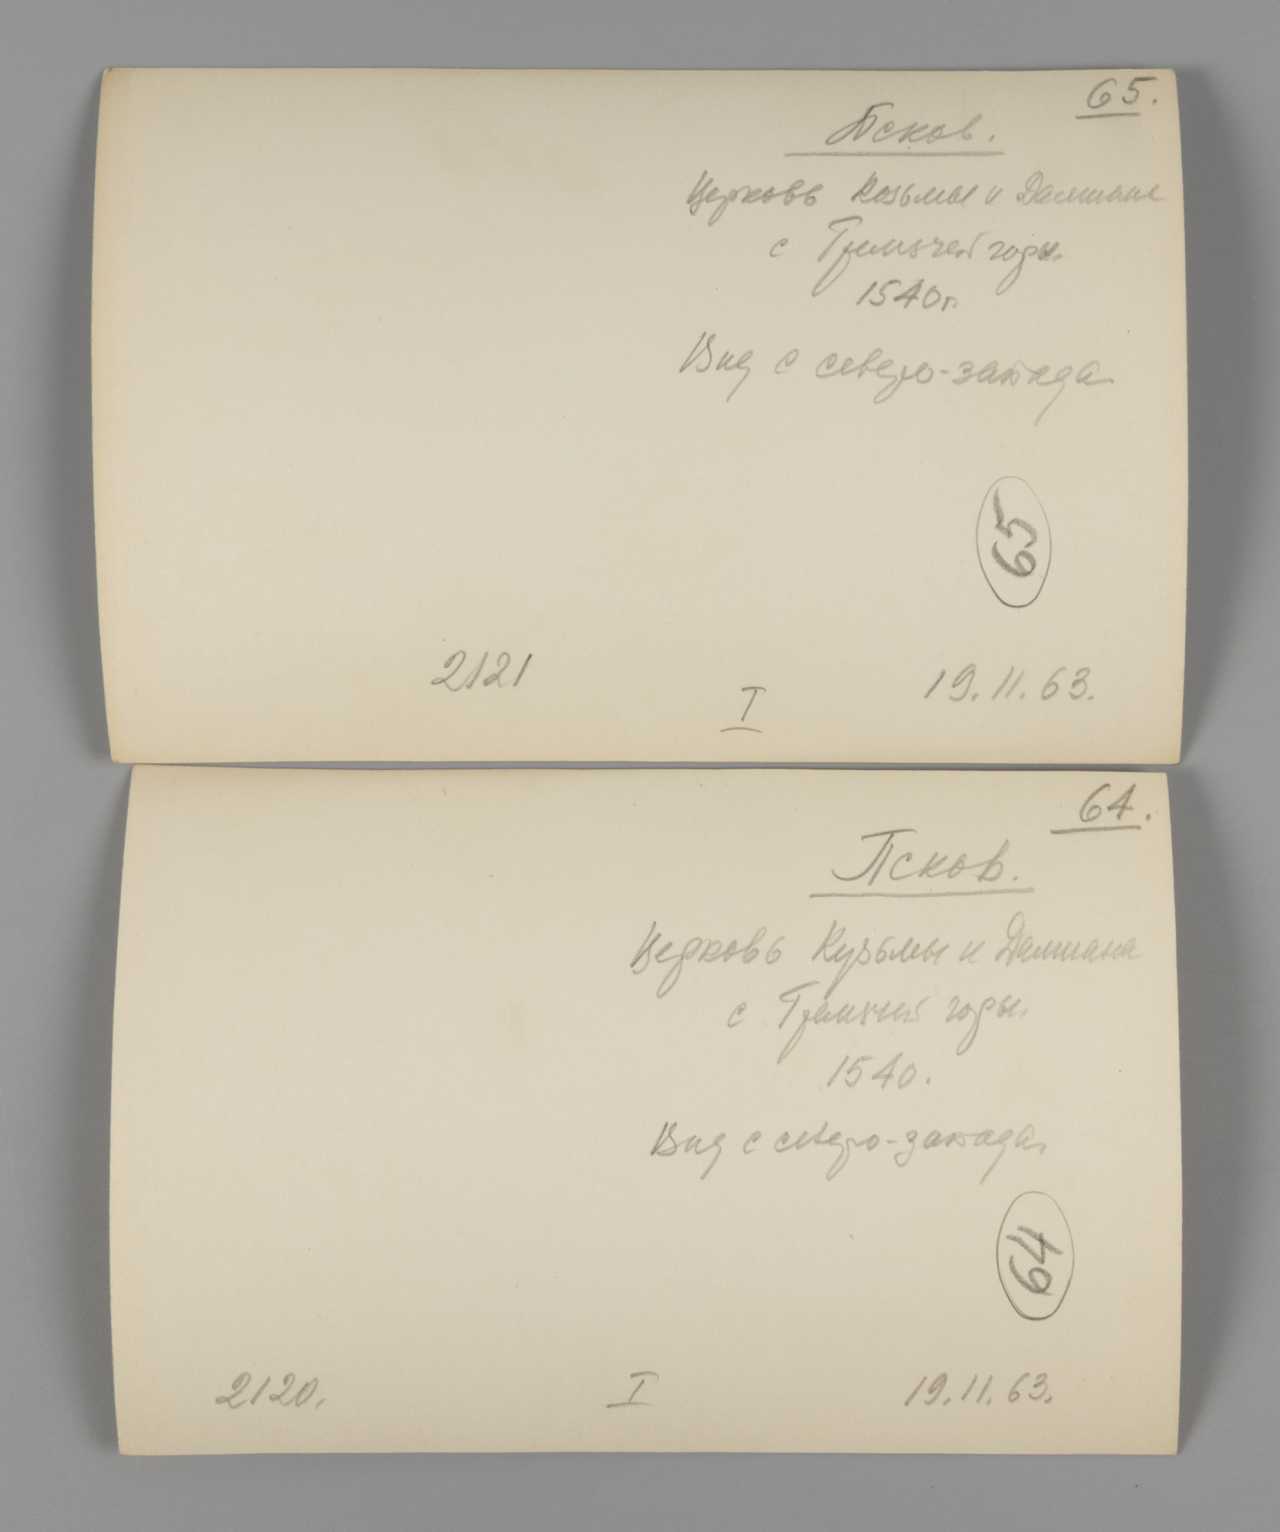 65.
Псков.
Церковь Козьмы и Дамиана
с Гремячей горы
1540г.
Вид с северо-запада
65
2121
I
19.11.63.
64.
Псков.
Церковь Кузьмы и Дамиана
с Гремячей горы.
1540.
Вид с северо-запада.
64
2120.
I
19.11.63.